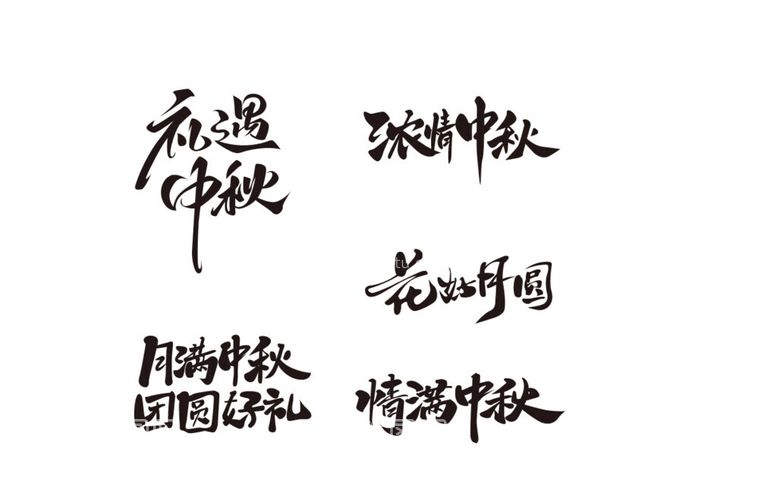 礼遇
中秋
浓情中秋
花好月圆
月满中秋
团圆好礼
情满中秋